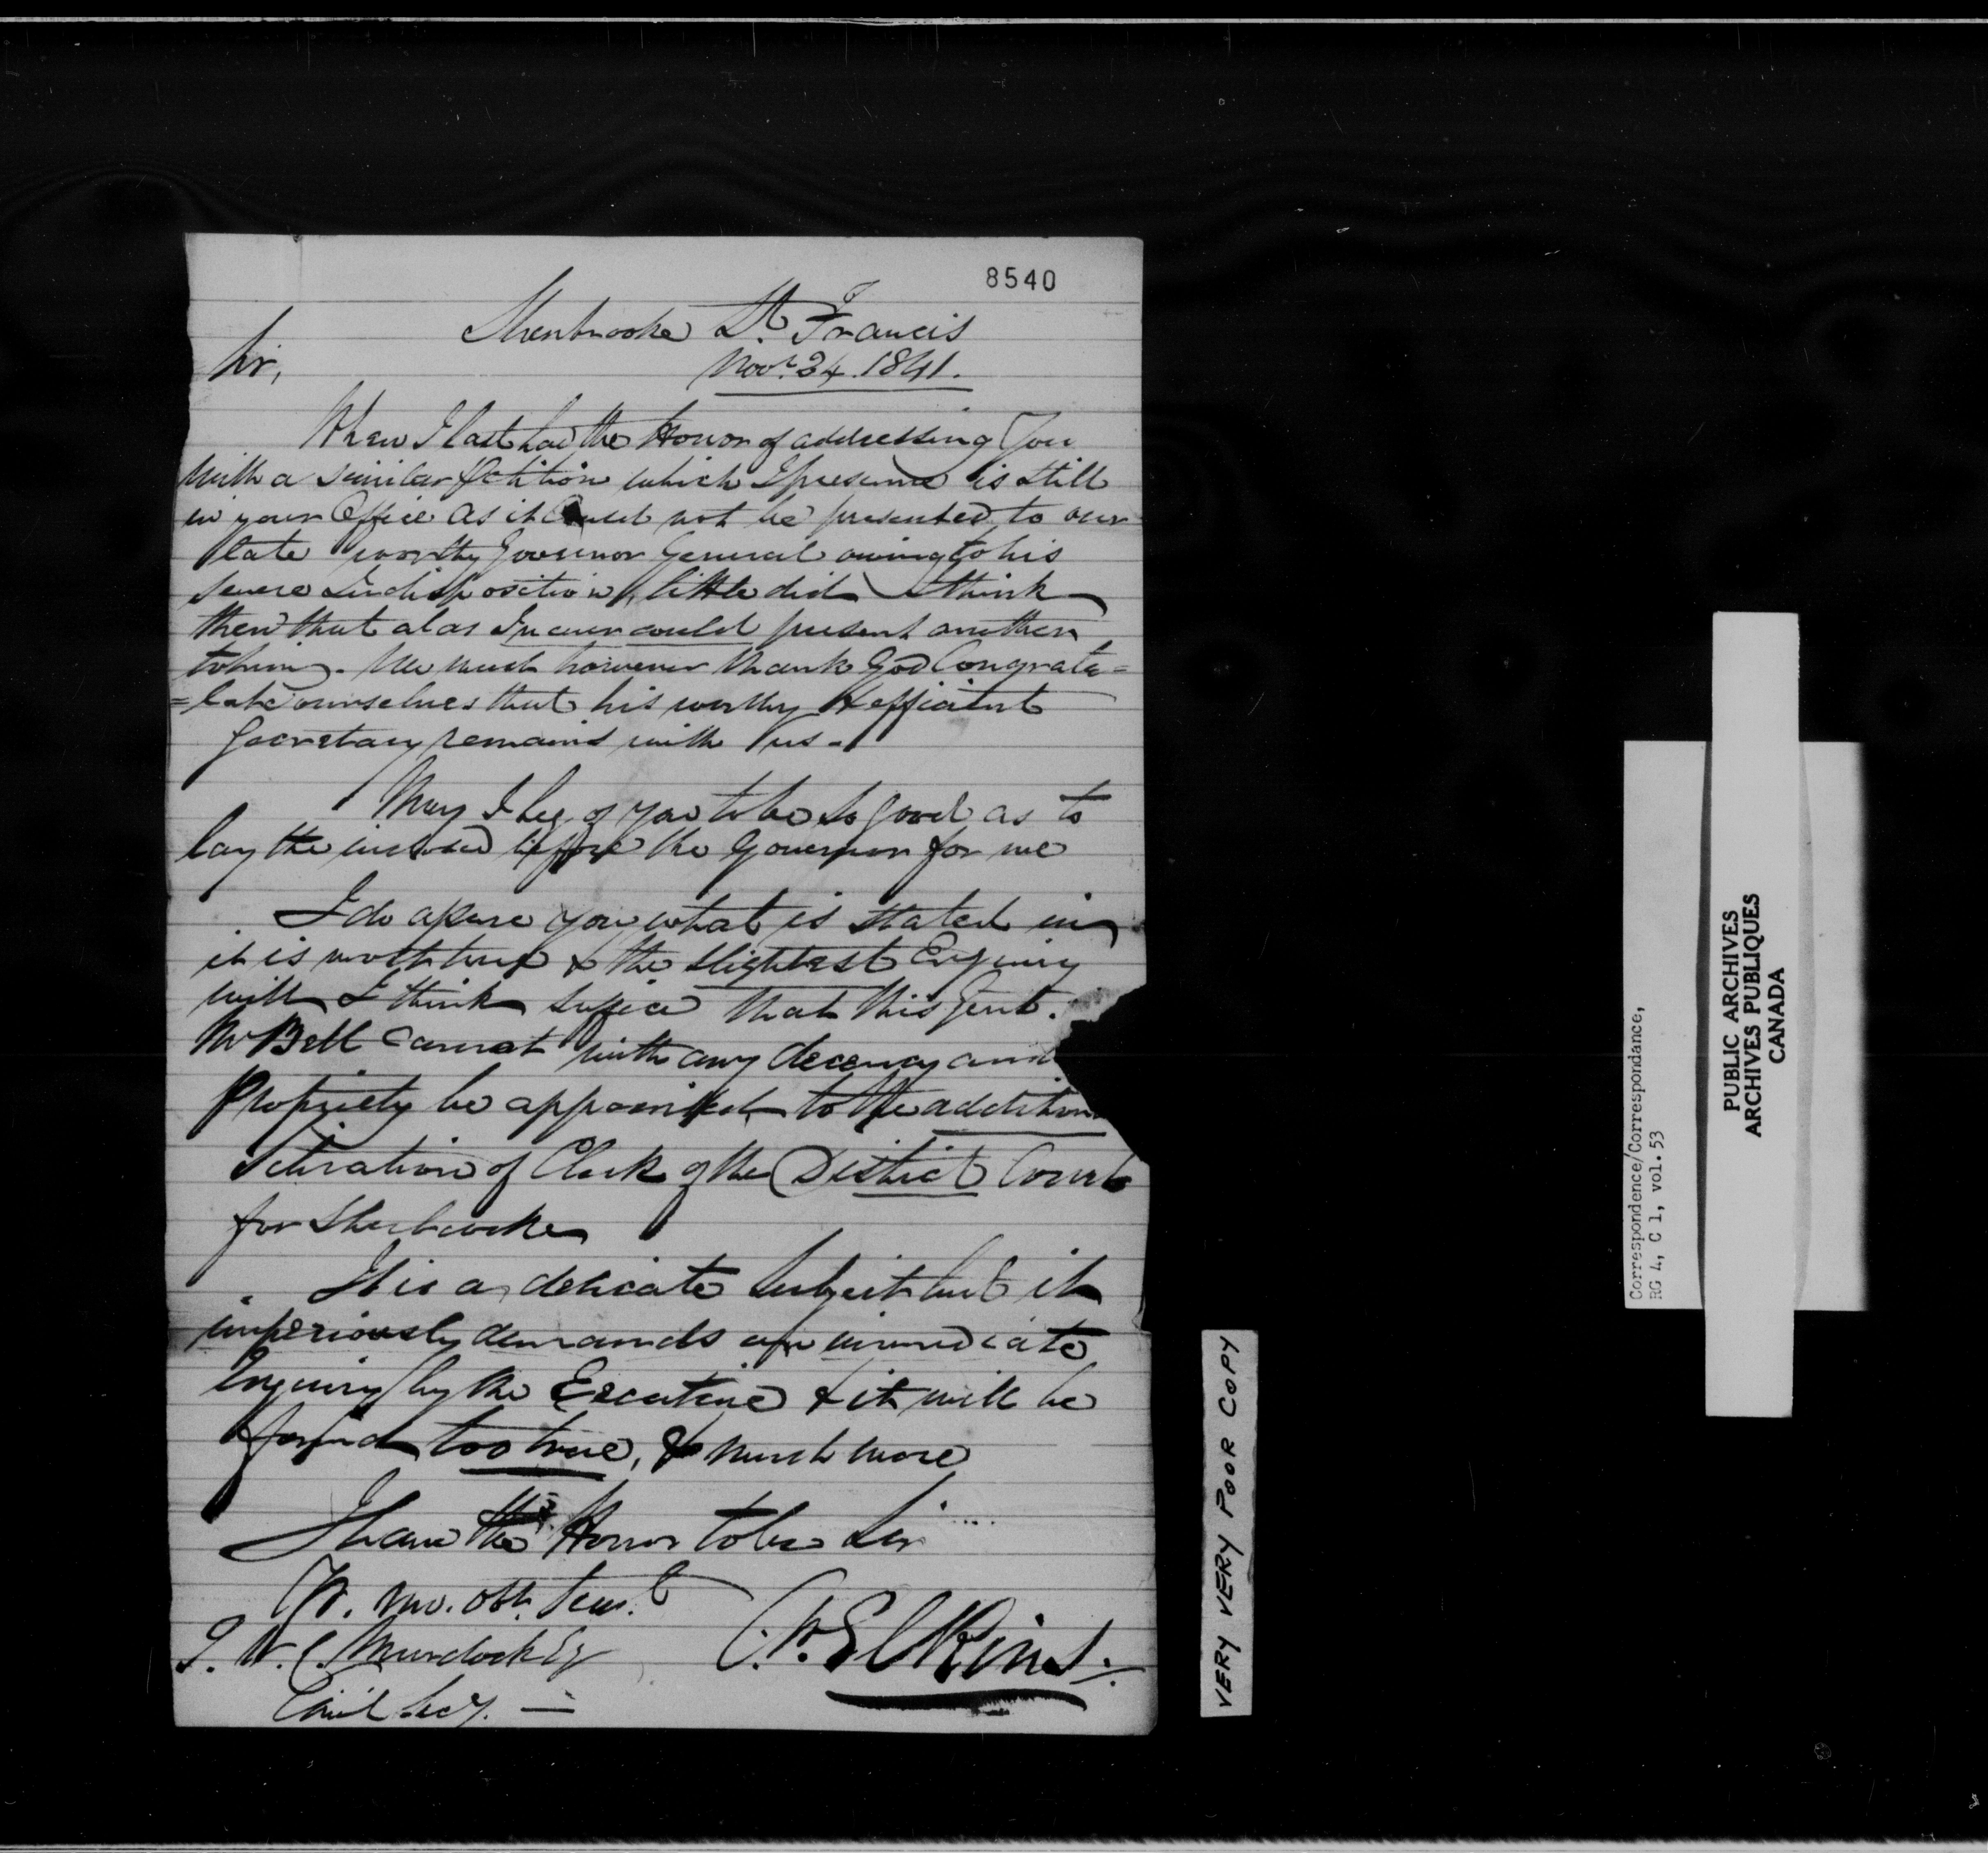 8540
Sherbrooke St. Francis
Novr. 24. 1841.
Sir,
When I last had the Honor of addressing You
with a similar Petition which I presume is still
in your Office as it could not be presented to our
late worthy Governor General owing to his
severe Indisposition, little did I think
then that alas I never could present another
to him. We must however thank God Congratu=
=late ourselves that his worthy & efficient
Secretary remains with us -
May I beg of you to be so good as to
lay the inclosed before the Governor for me
I do assure you what is stated in
it is most true & the slightest Enquiry
will I think suffice that this Gent.
Mr Bell cannot with any decency and
Propriety be appointed to the addition
Situation of Clerk of the District Court
for Sherbrooke
It is a delicate subject but it
imperiously demands an immediate
Enquiry by the Executive & it will be
found too true, & much more
I have the Honor to be Sir
Yr. mo. obt. Servt.
C. W. Elkins.
T. W. C. Murdock Esq
Chief Secy. —
VERY VERY POOR COPY
Correspondence/Correspondance,
RG 4, C 1, vol. 53
PUBLIC ARCHIVES
ARCHIVES PUBLIQUES
CANADA